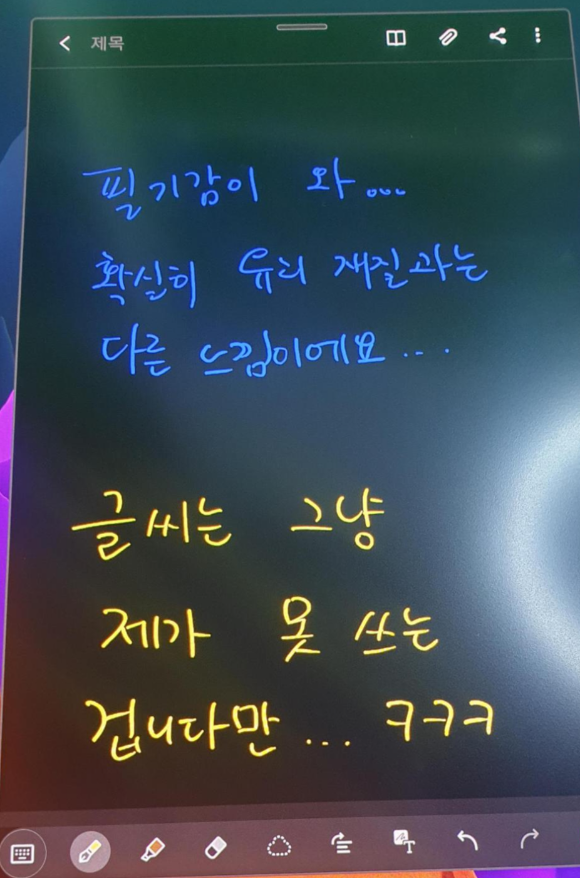 제목
필기감이 와...
확실히 유리 재질과는
다른 느낌이에요...
글씨는 그냥
제가 못 쓰는
겁니다만... ㅋㅋㅋ
T